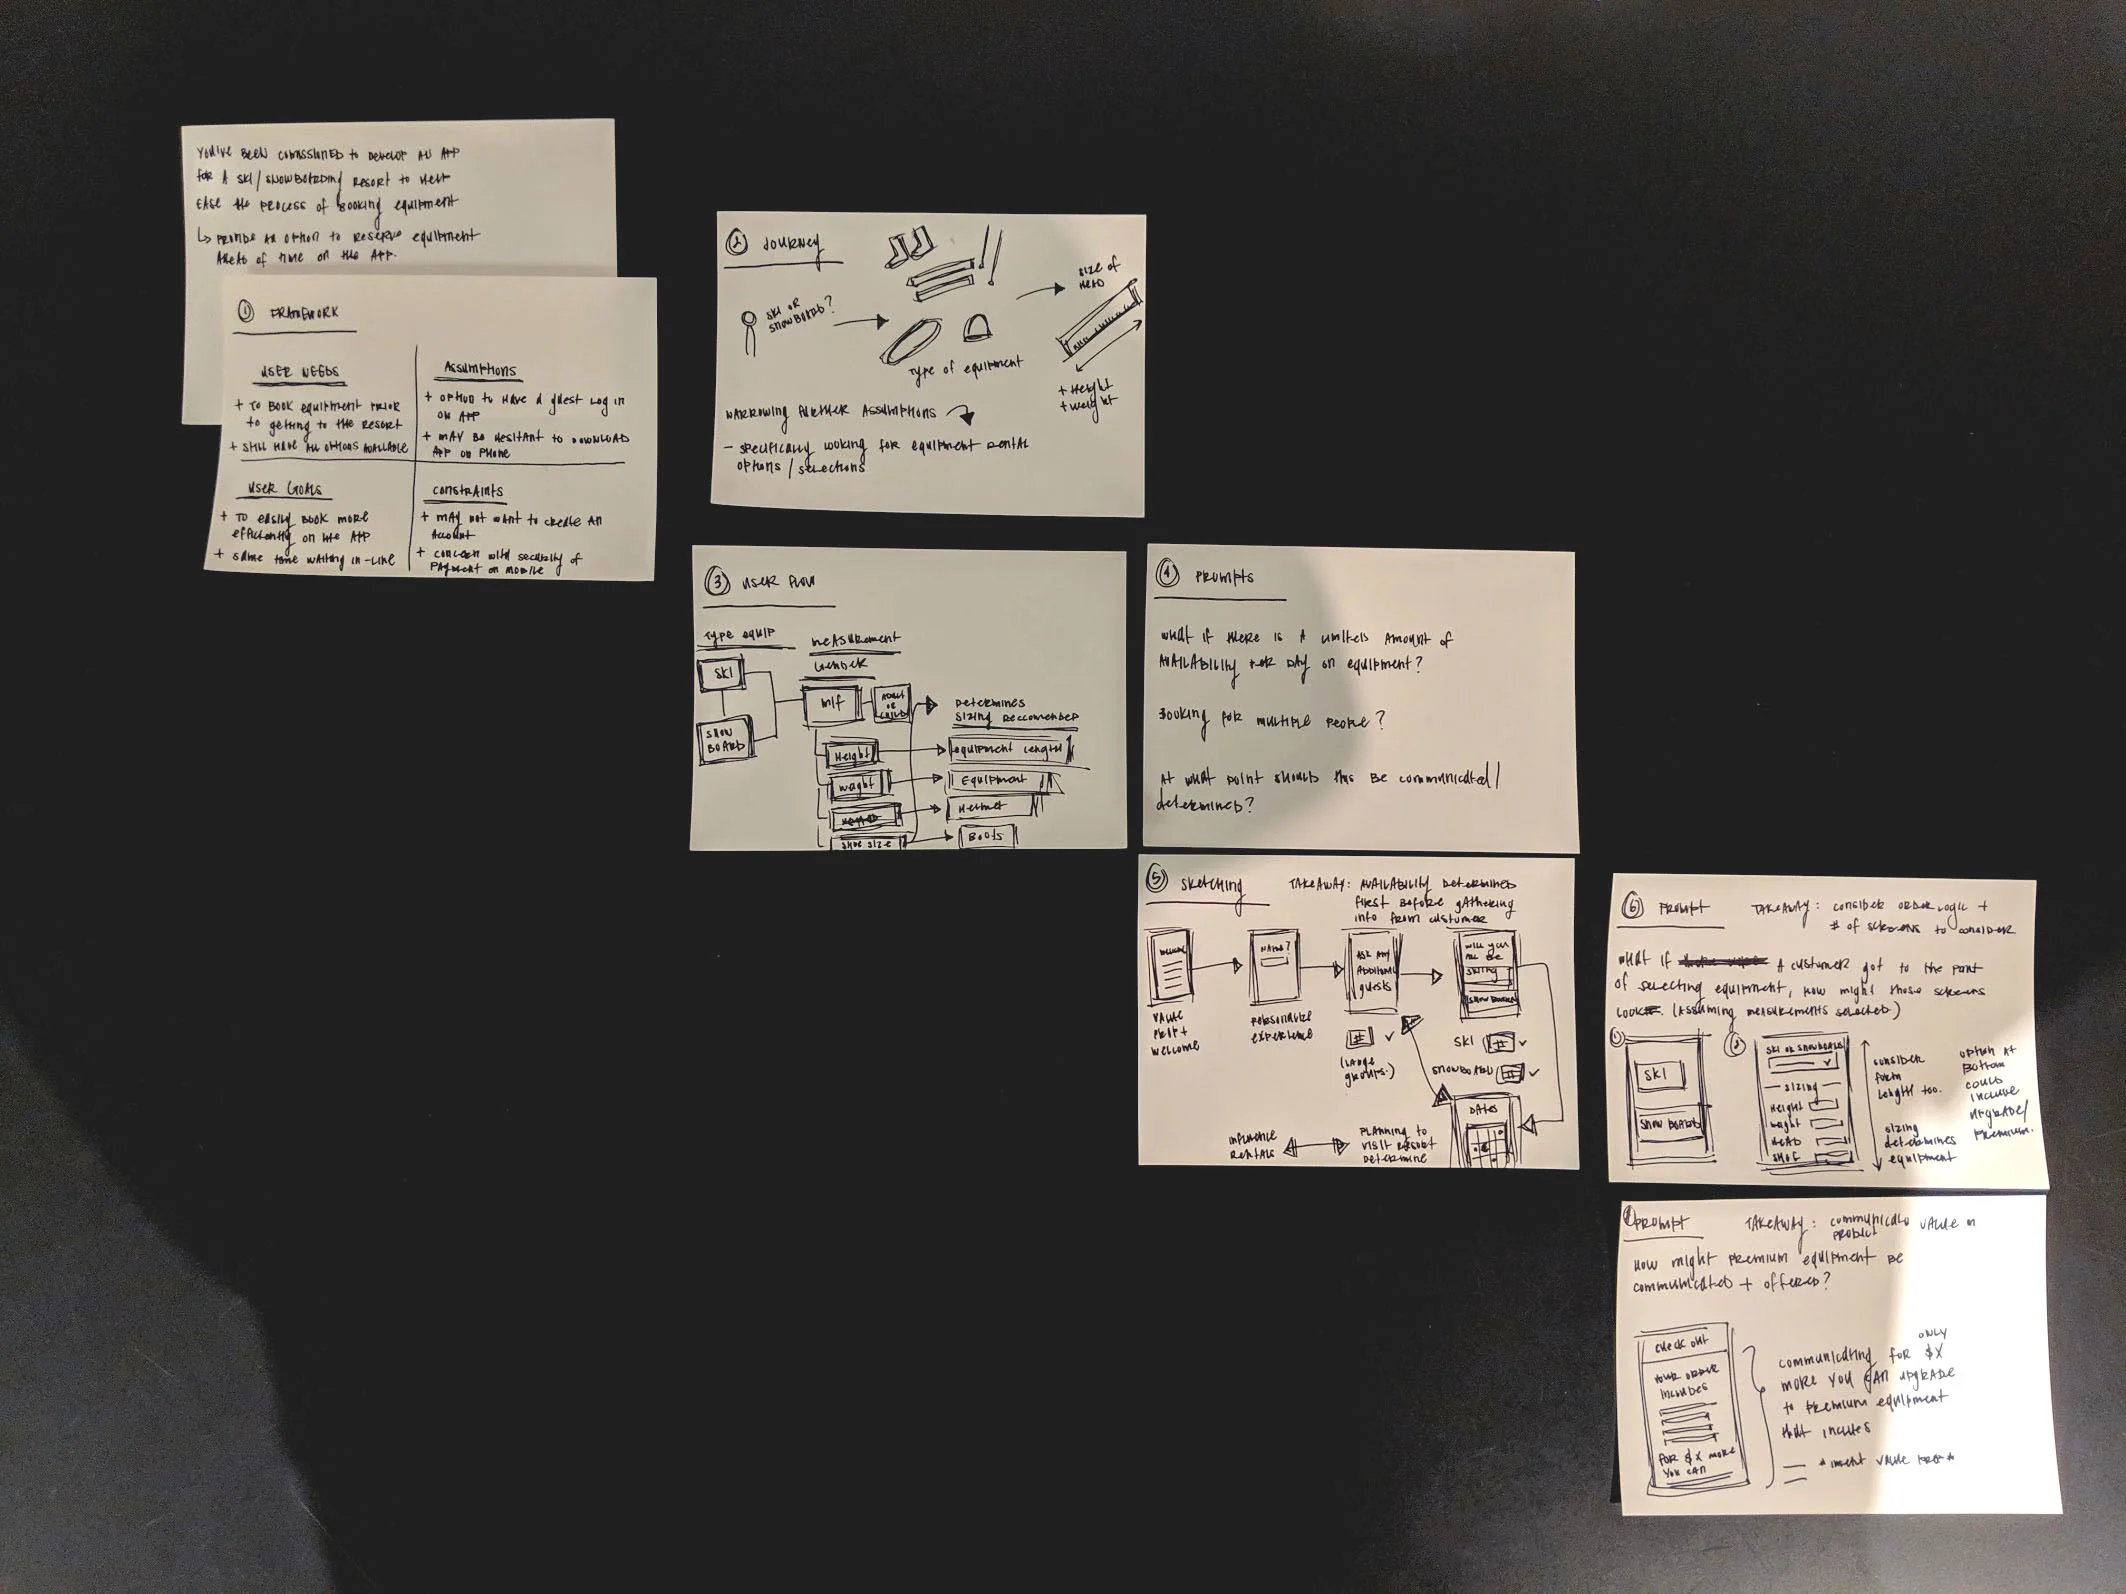 YOU'VE BEEN COMISSIONED to DEVELOP AN APP
for A SKI/SNOWBOARDING RESORT to HELP
EASE the PROCESS of BOOKING EQUIPMENT
↳ PROVIDE AN OPTION to RESERVE EQUIPMENT
AHEAD of TIME ON the APP.
① FRAMEWORK
USER NEEDS
+ TO BOOK EQUIPMENT PRIOR
to getting to the RESORT
+ STILL HAVE ALL OPTIONS AVAILABLE
ASSUMPTIONS
+ OPTION to HAVE A guest LOG IN
ON APP
+ MAY BE HESITANT to DOWNLOAD
APP ON PHONE
USER GOALS
+ TO EASILY BOOK MORE
EFFICIENTLY ON the APP
+ time WAITING IN-LINE
CONSTRAINTS
+ MAY NOT WANT to CREATE AN
ACCOUNT
+ CONCERN with SECURITY of
PAYMENT ON MOBILE
② JOURNEY
SKI OR
SNOWBOARD?
Type of EQUIPMENT
SIZE of
HEAD
+ Height
+ Weight
NARROWING FURTHER ASSUMPTIONS
- SPECIFICALLY LOOKING FOR EQUIPMENT RENTAL
OPTIONS / SELECTIONS
③ USER FLOW
Type EQUIP
SKI
SNOW
BOARD
MEASUREMENT
GENDER
M/F
ADULT
OR
CHILD
DETERMINES
SIZING RECCOMENDED
Height
EQUIPMENT LENGTH
Weight
EQUIPMENT
HELMET
SHOE SIZE
BOOTS
④ PROMPTS
WHAT IF THERE IS A LIMITED AMOUNT of
AVAILABILITY PER DAY ON EQUIPMENT?
BOOKING FOR MULTIPLE PEOPLE?
AT WHAT POINT SHOULD THIS BE COMMUNICATED/
DETERMINED?
⑤ SKETCHING
TAKEAWAY: AVAILABILITY DETERMINED
FIRST BEFORE GATHERING
INFO FROM CUSTOMER
WELCOME
VALUE
PROP +
WELCOME
NAME?
PERSONALIZE
EXPERIENCE
ASK ANY
ADDITIONAL
guests
#
(LARGE
groups.)
WILL YOU
ALL BE
SKIING
SNOWBOARD
SKI #
SNOWBOARD #
DATES
INFLUENCE
RENTALS
PLANNING to
VISIT RESORT
DETERMINE
⑥ PROMPT
TAKEAWAY: CONSIDER ORDER LOGIC +
# of SCREENS to CONSIDER
WHAT IF A CUSTOMER got to the POINT
of SELECTING EQUIPMENT, HOW MIGHT those SCREENS
LOOK. (ASSUMING MEASUREMENTS SELECTED)
①
SKI
SNOW BOARD
②
SKI OR SNOWBOARD
SIZING
HEIGHT
WEIGHT
HEAD
SHOE
CONSIDER
FORM
LENGTH TOO.
SIZING
DETERMINES
EQUIPMENT
OPTION AT
BOTTOM
COULD
INCLUDE
UPGRADE/
PREMIUM.
PROMPT
TAKEAWAY: COMMUNICATE VALUE IN
PRODUCT
HOW MIGHT PREMIUM EQUIPMENT BE
COMMUNICATED + OFFERED?
CHECK OUT
YOUR ORDER
INCLUDES
FOR $X MORE
YOU CAN
ONLY
COMMUNICATING FOR $X
MORE YOU CAN UPGRADE
to PREMIUM EQUIPMENT
THAT INCLUDES
* INSERT VALUE PROP *